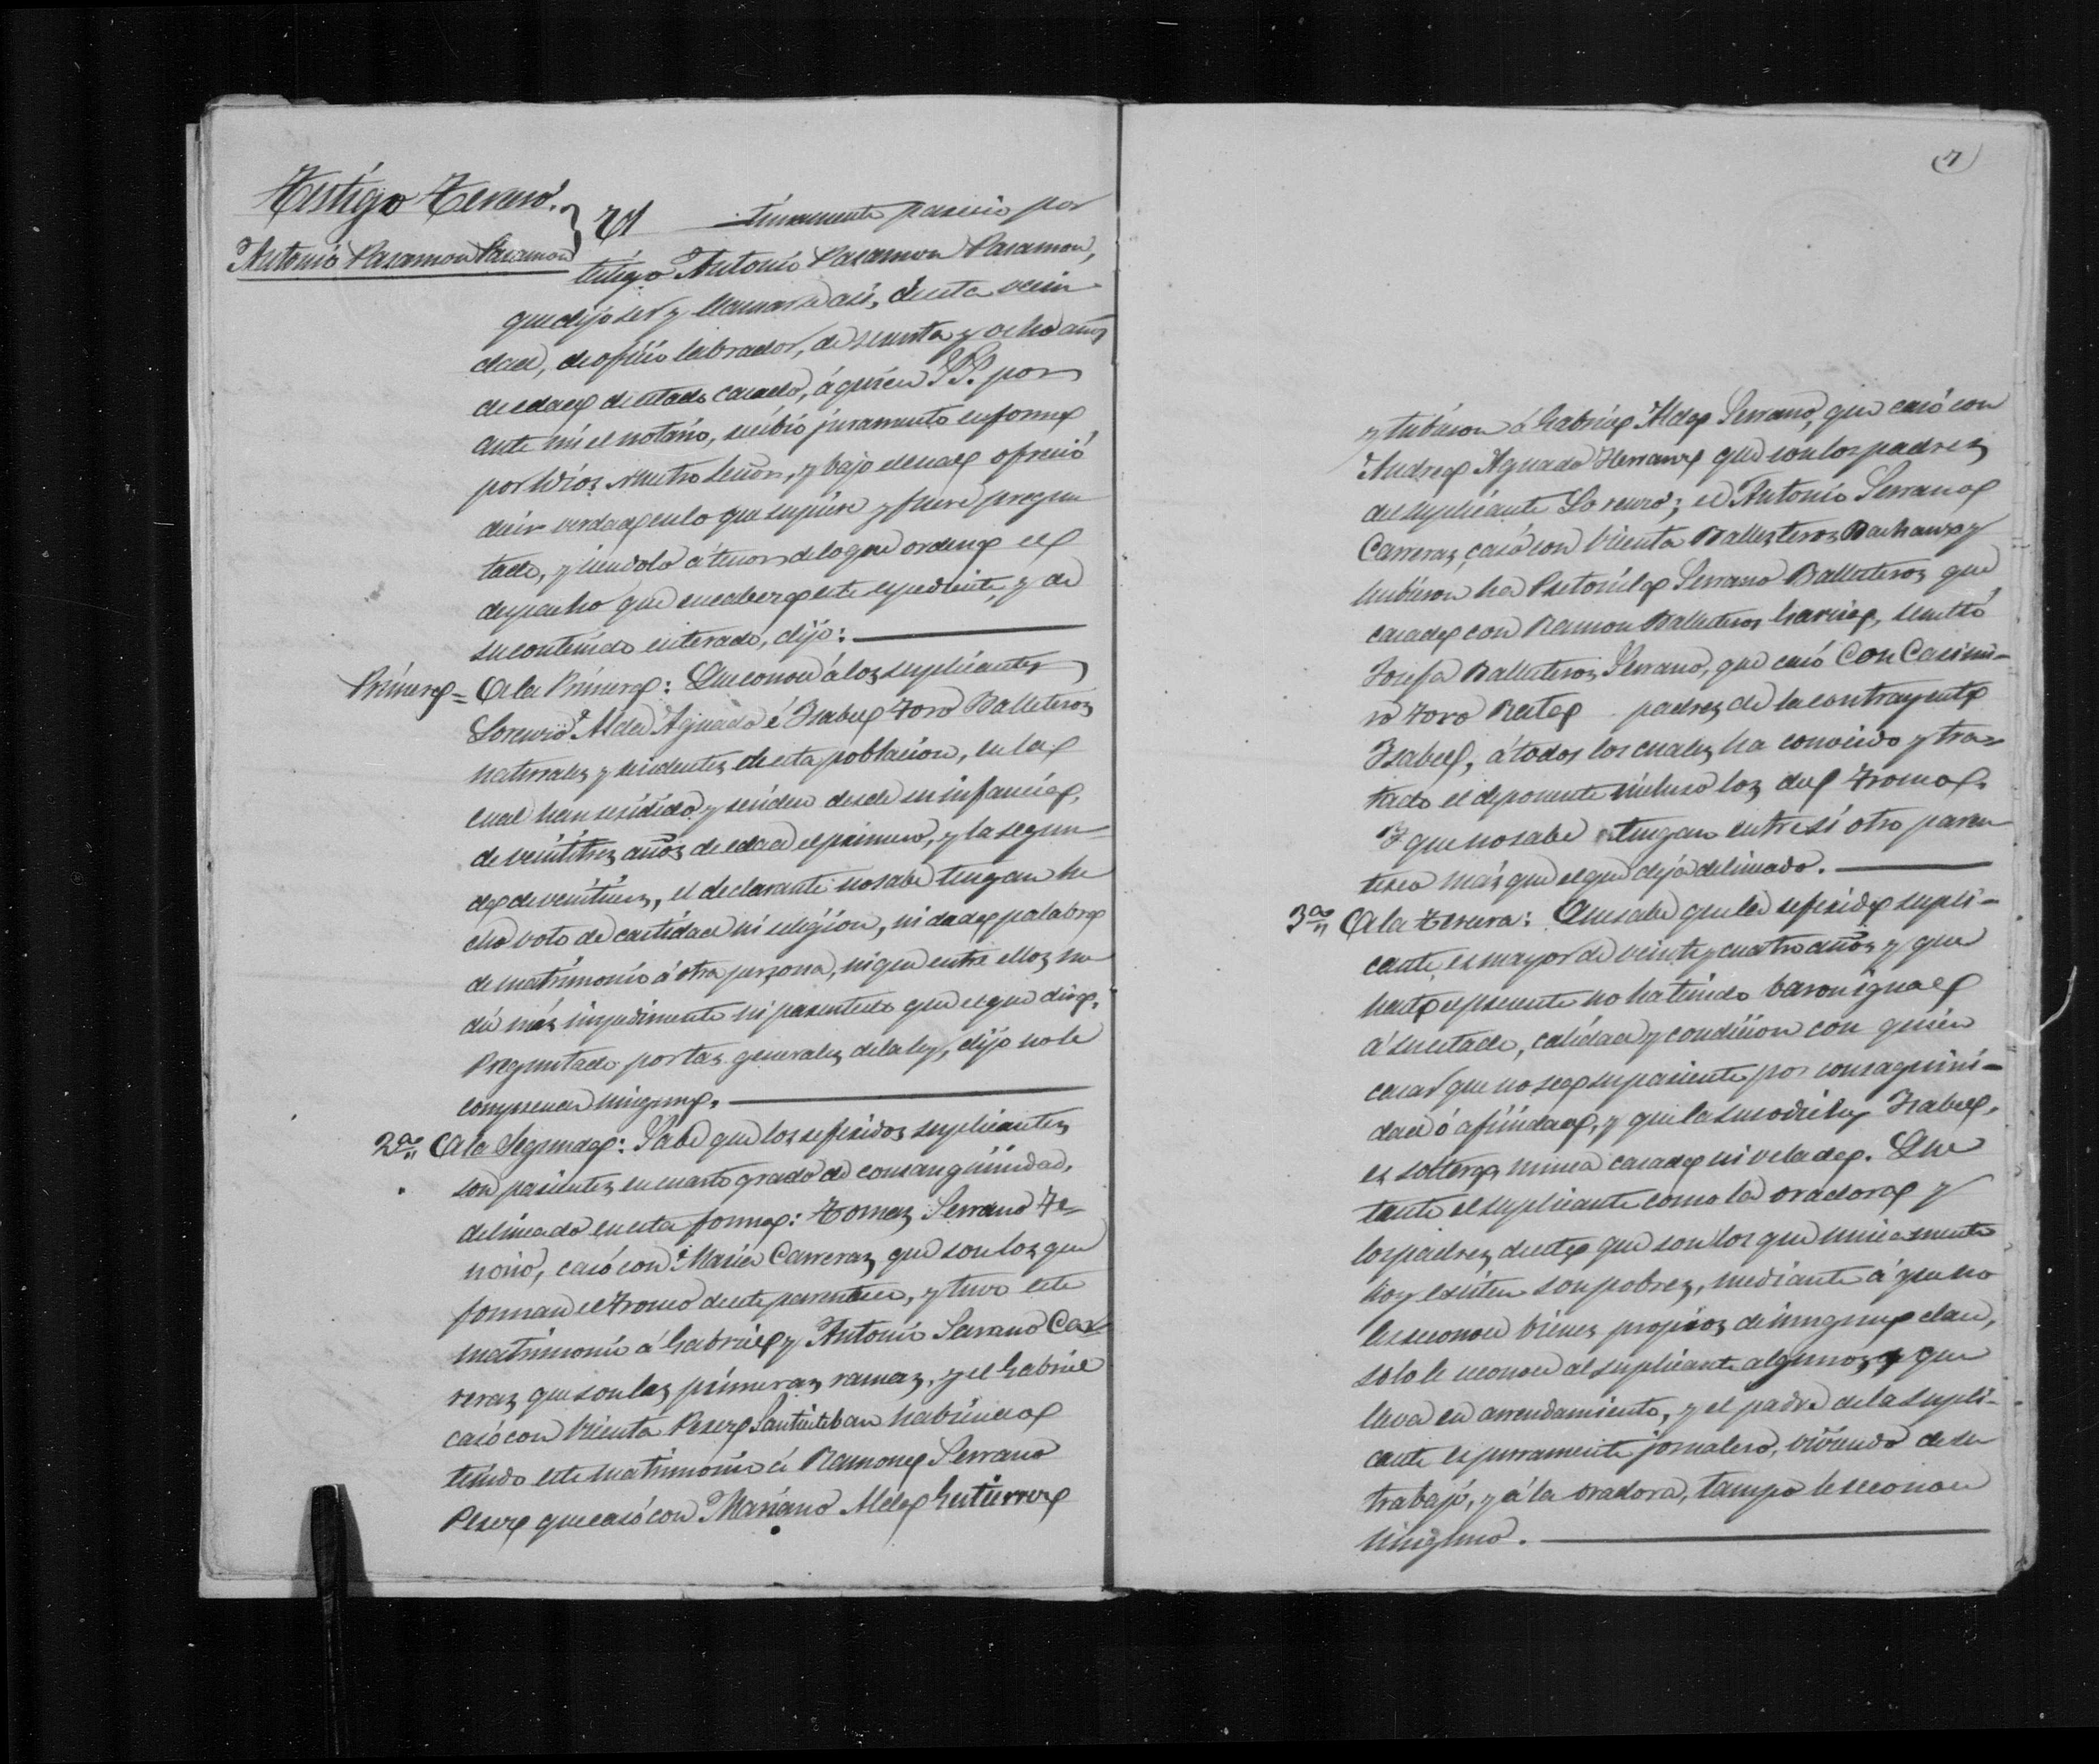 Testigo Tercero.
Antonio Pasamon Pasamon
Ul timamente parecio por
testigo Antonio Pasamon Pasamon,
que dijo ser y llamarse asi, de esta vecin
dad, de oficio labrador, de sesenta y ocho años
de edad de estado casado, á quien S.S. por
ante mi el notario, recibió juramento en forma
por Dios Nuestro Señor, y bajo el cual ofreció
decir verdad en lo que supiere y fuere pregun
tado, y siendolo á tenor de lo que ordena el
despacho que encabeza este espediente, y de
su contenido enterado, dijo:
Primera= A la Primera: Que conoce á los suplicantes
Lorenzo Alda Aguado é Isabel Toro Ballesteros
naturales y residentes de esta poblacion, en la
cual han residido y residen desde su infancia,
de veintitres años de edad el primero, y la segun
da de , el declarante no sabe tengan he
cho voto de castidad ni religion, ni dada palabra
de matrimonio á otra persona, ni que entre ellos me
die más impedimento ni parentesco que el que dirá.
Preguntado por las generales de la ley, dijo no le
comprenden ninguna.
2ª A la Segunda: Sabe que los referidos suplicantes
son parientes en cuarto grado de consanguinidad,
delineado en esta forma: Tomas Serrano Te-
norio, casó con Maria Carreras que son los que
forman el Tronco de este parentesco, y tuvo este
matrimonio á Gabriel y Antonio Serrano Car-
reras que son las primeras ramas, y el Gabriel
casó con Vicenta Perez Santisteban habiendo
tenido este matrimonio á Ramona Serrano
Perez que casó con Mariano Alda Gutierrez
(7)
y tubieron á Gabriel Alda Serrano, que casó con
Andrea Aguado Herranz que son los padres
del suplicante Lorenzo; el Antonio Serrano
Carreras, casó con Vicenta Ballesteros y
hubieron ha Serrano Ballesteros que
casada con Ramon Ballesteros Garcia, resultó
Josefa Ballesteros Serrano, que casó con Casimi-
ro Toro padres de la contrayente
Isabel, á todos los cuales ha conocido y tra-
tado el deponente incluso los del Tronco.
Y que no sabe tengan entre sí otro paren
tesco más que el que deja delineado.
3ª A la tercera: Que sabe que la referida supli-
cante es mayor de veinte y cuatro años y que
hasta el presente no ha tenido baron igual
á su estado, calidad y condicion con quien
casar que no sea su pariente por consaguini-
dad ó afinidad, y que la susodicha Isabel,
es soltera nunca casada ni velada. Que
tanto el suplicante como la oradora y
los padres de esta que son los que unicamente
hoy existen son pobres, mediante á que no
les reconoce bienes propios de ninguna clase,
solo le reconoce al suplicante algunos que
lleva en arrendamiento, y el padre de la supli-
cante es puramente jornalero, viviendo de su
trabajo, y á la oradora, tampo le reconoce
ninguno.